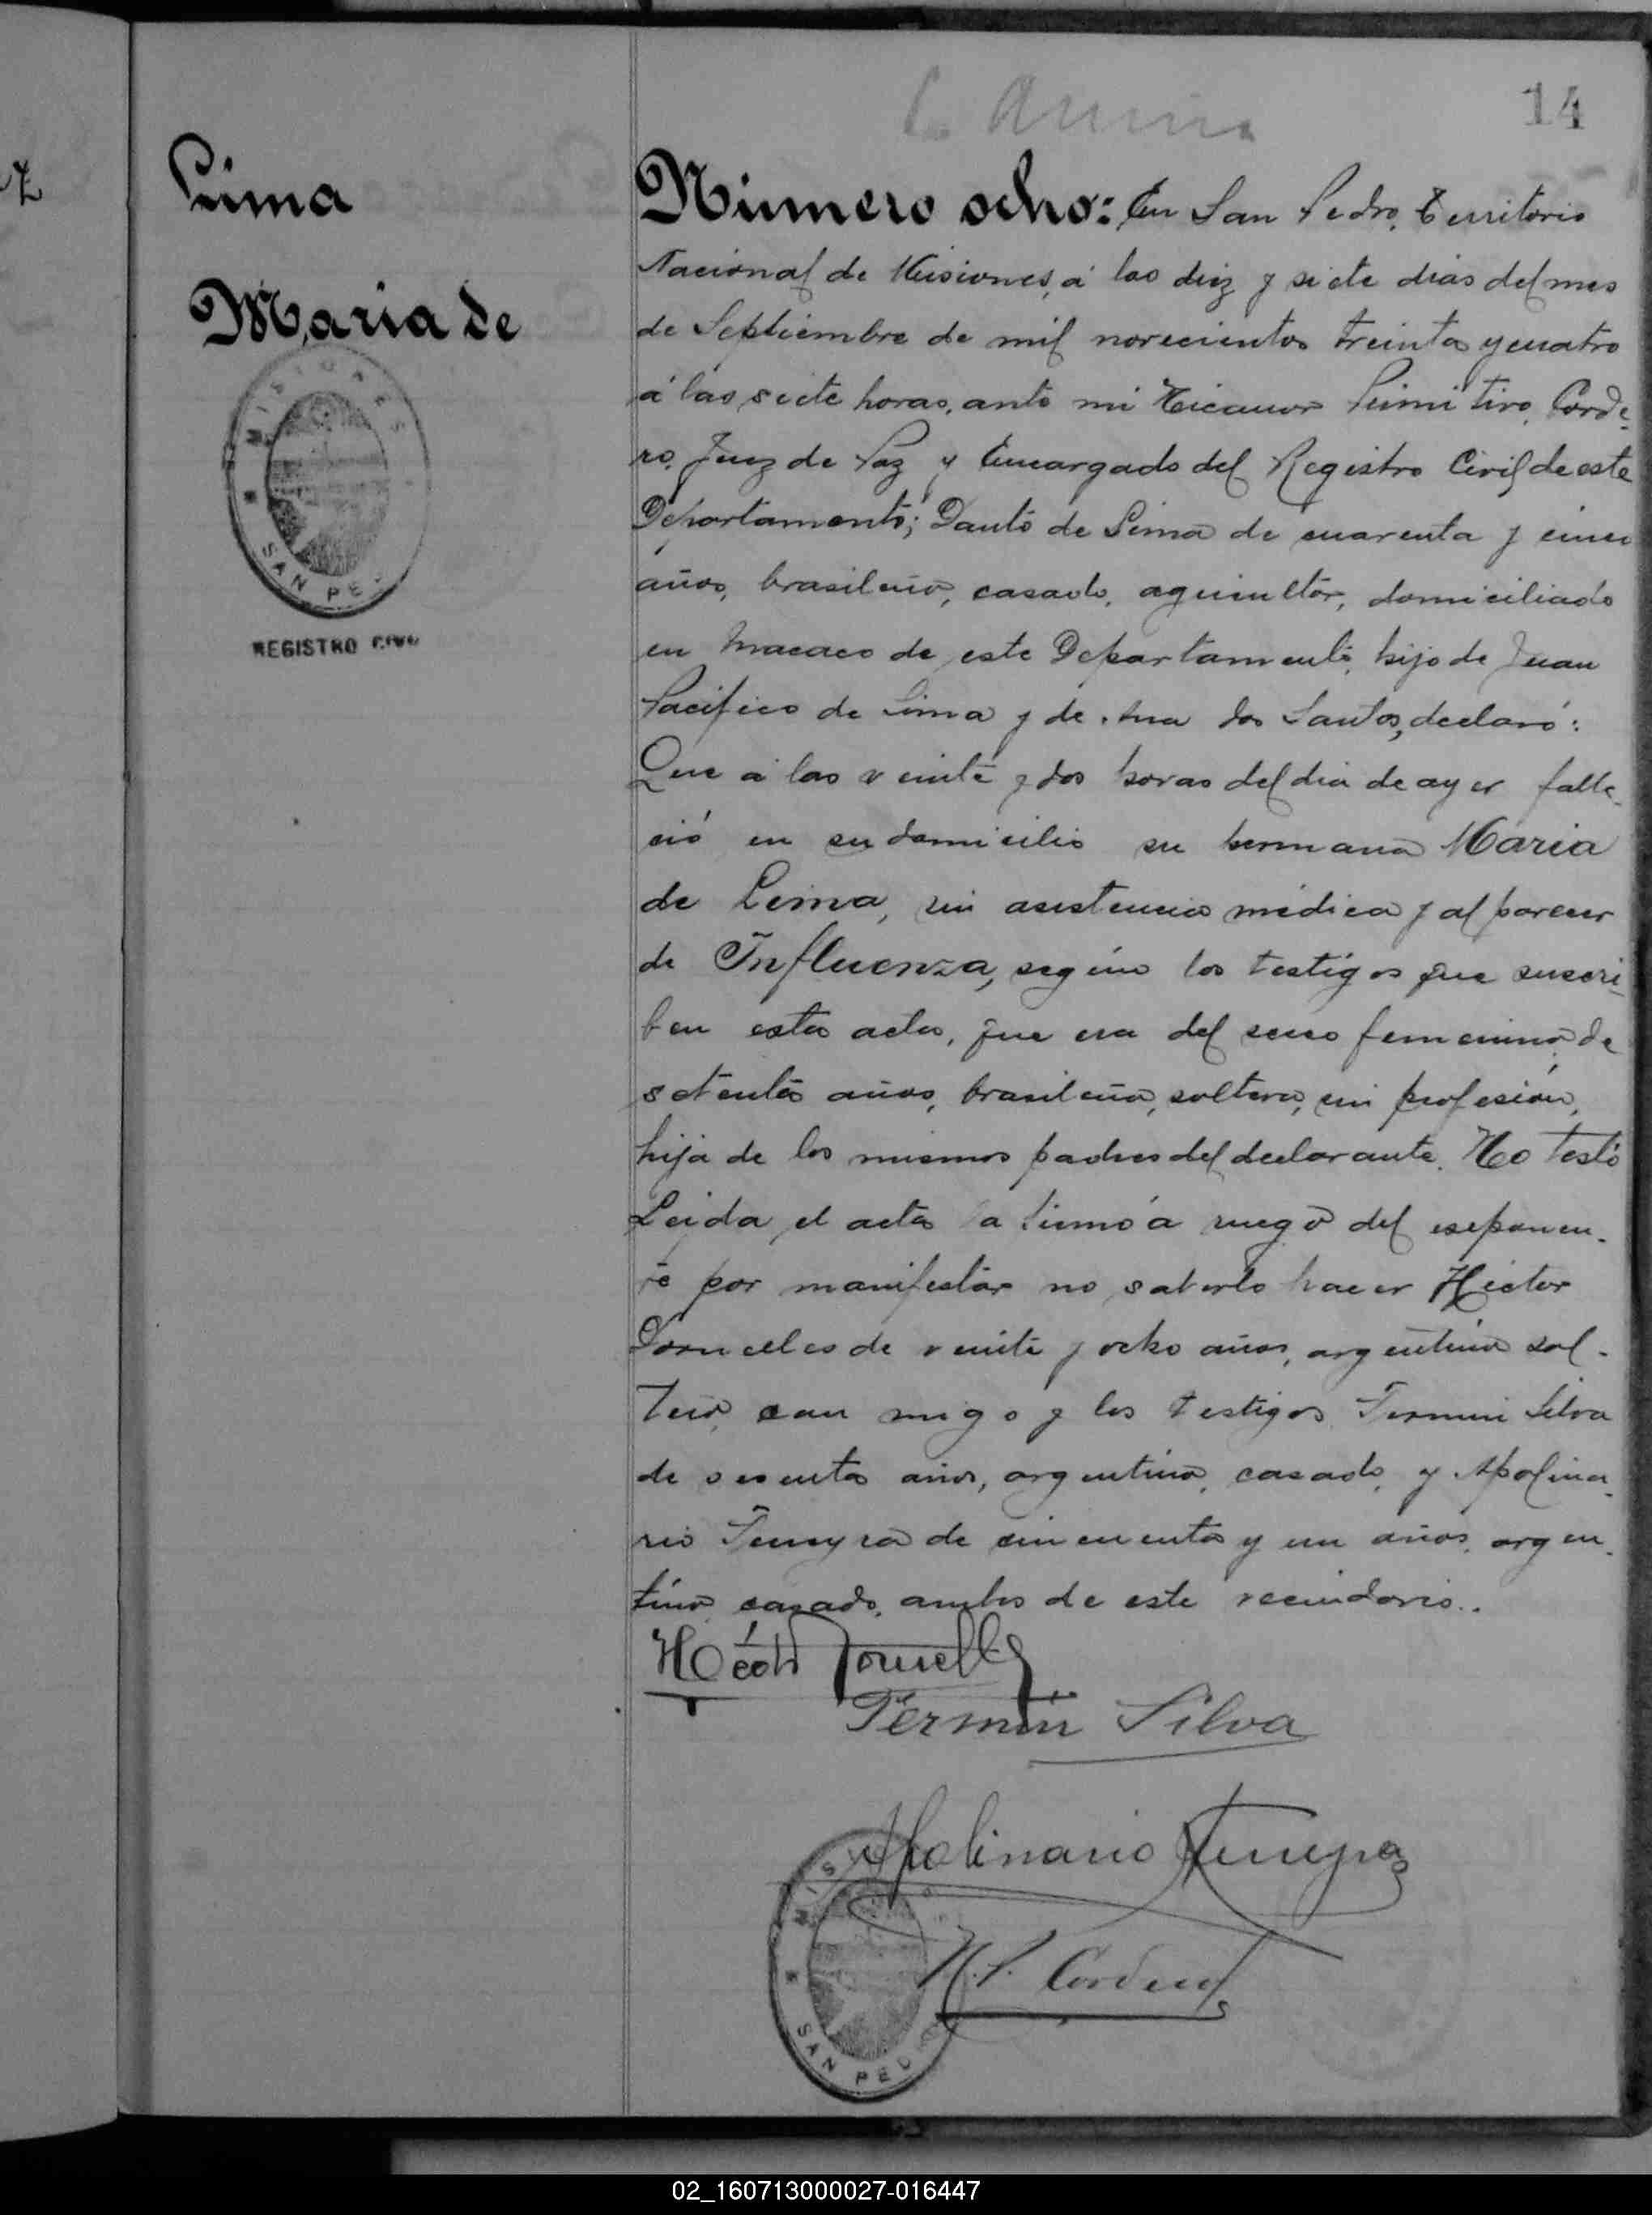 14
Lima
Maria de
MISIONES
SAN PE
REGISTRO CIVIL
Número ocho: En San Pedro, Territorio
Nacional de Misiones, á los diez y siete dias del mes
de Septiembre de mil novecientos treinta y cuatro
á las siete horas, ante mi Nicanor Primitivo Corde-
ro, Juez de Paz y Encargado del Registro Civil de este
Departamento; Dante de Lima de cuarenta y cinco
años, brasileño, casado, agricultor, domiciliado
en Macaco de este Departamento, hijo de Juan
Pacifico de Lima y de Ana dos Santos, declaró:
Que á las veinte y dos horas del dia de ayer falle-
ció en su domicilio su hermana Maria
de Lima, sin asistencia médica y al parecer
de Influenza, según los testigos que suscri-
ben esta acta, que era del sexo femenino de
setenta años, brasileña, soltera, sin profesión,
hija de los mismos padres del declarante. No testó
Leida el acta la firmó á ruego del exponen-
te por manifestar no saberlo hacer Héctor
Dornelles de veinte y ocho años, argentino sol-
tero, con migo y los testigos Fermin Silva
de sesenta años, argentino, casado, y Apolina-
rio Ferreyra de cincuenta y un años, argen-
tino casado, ambos de este vecindario.
Héctor Dornelles
Fermín Silva
Apolinario Ferreyra
N. P. Cordero
MIS
SAN PED
02_160713000027-016447